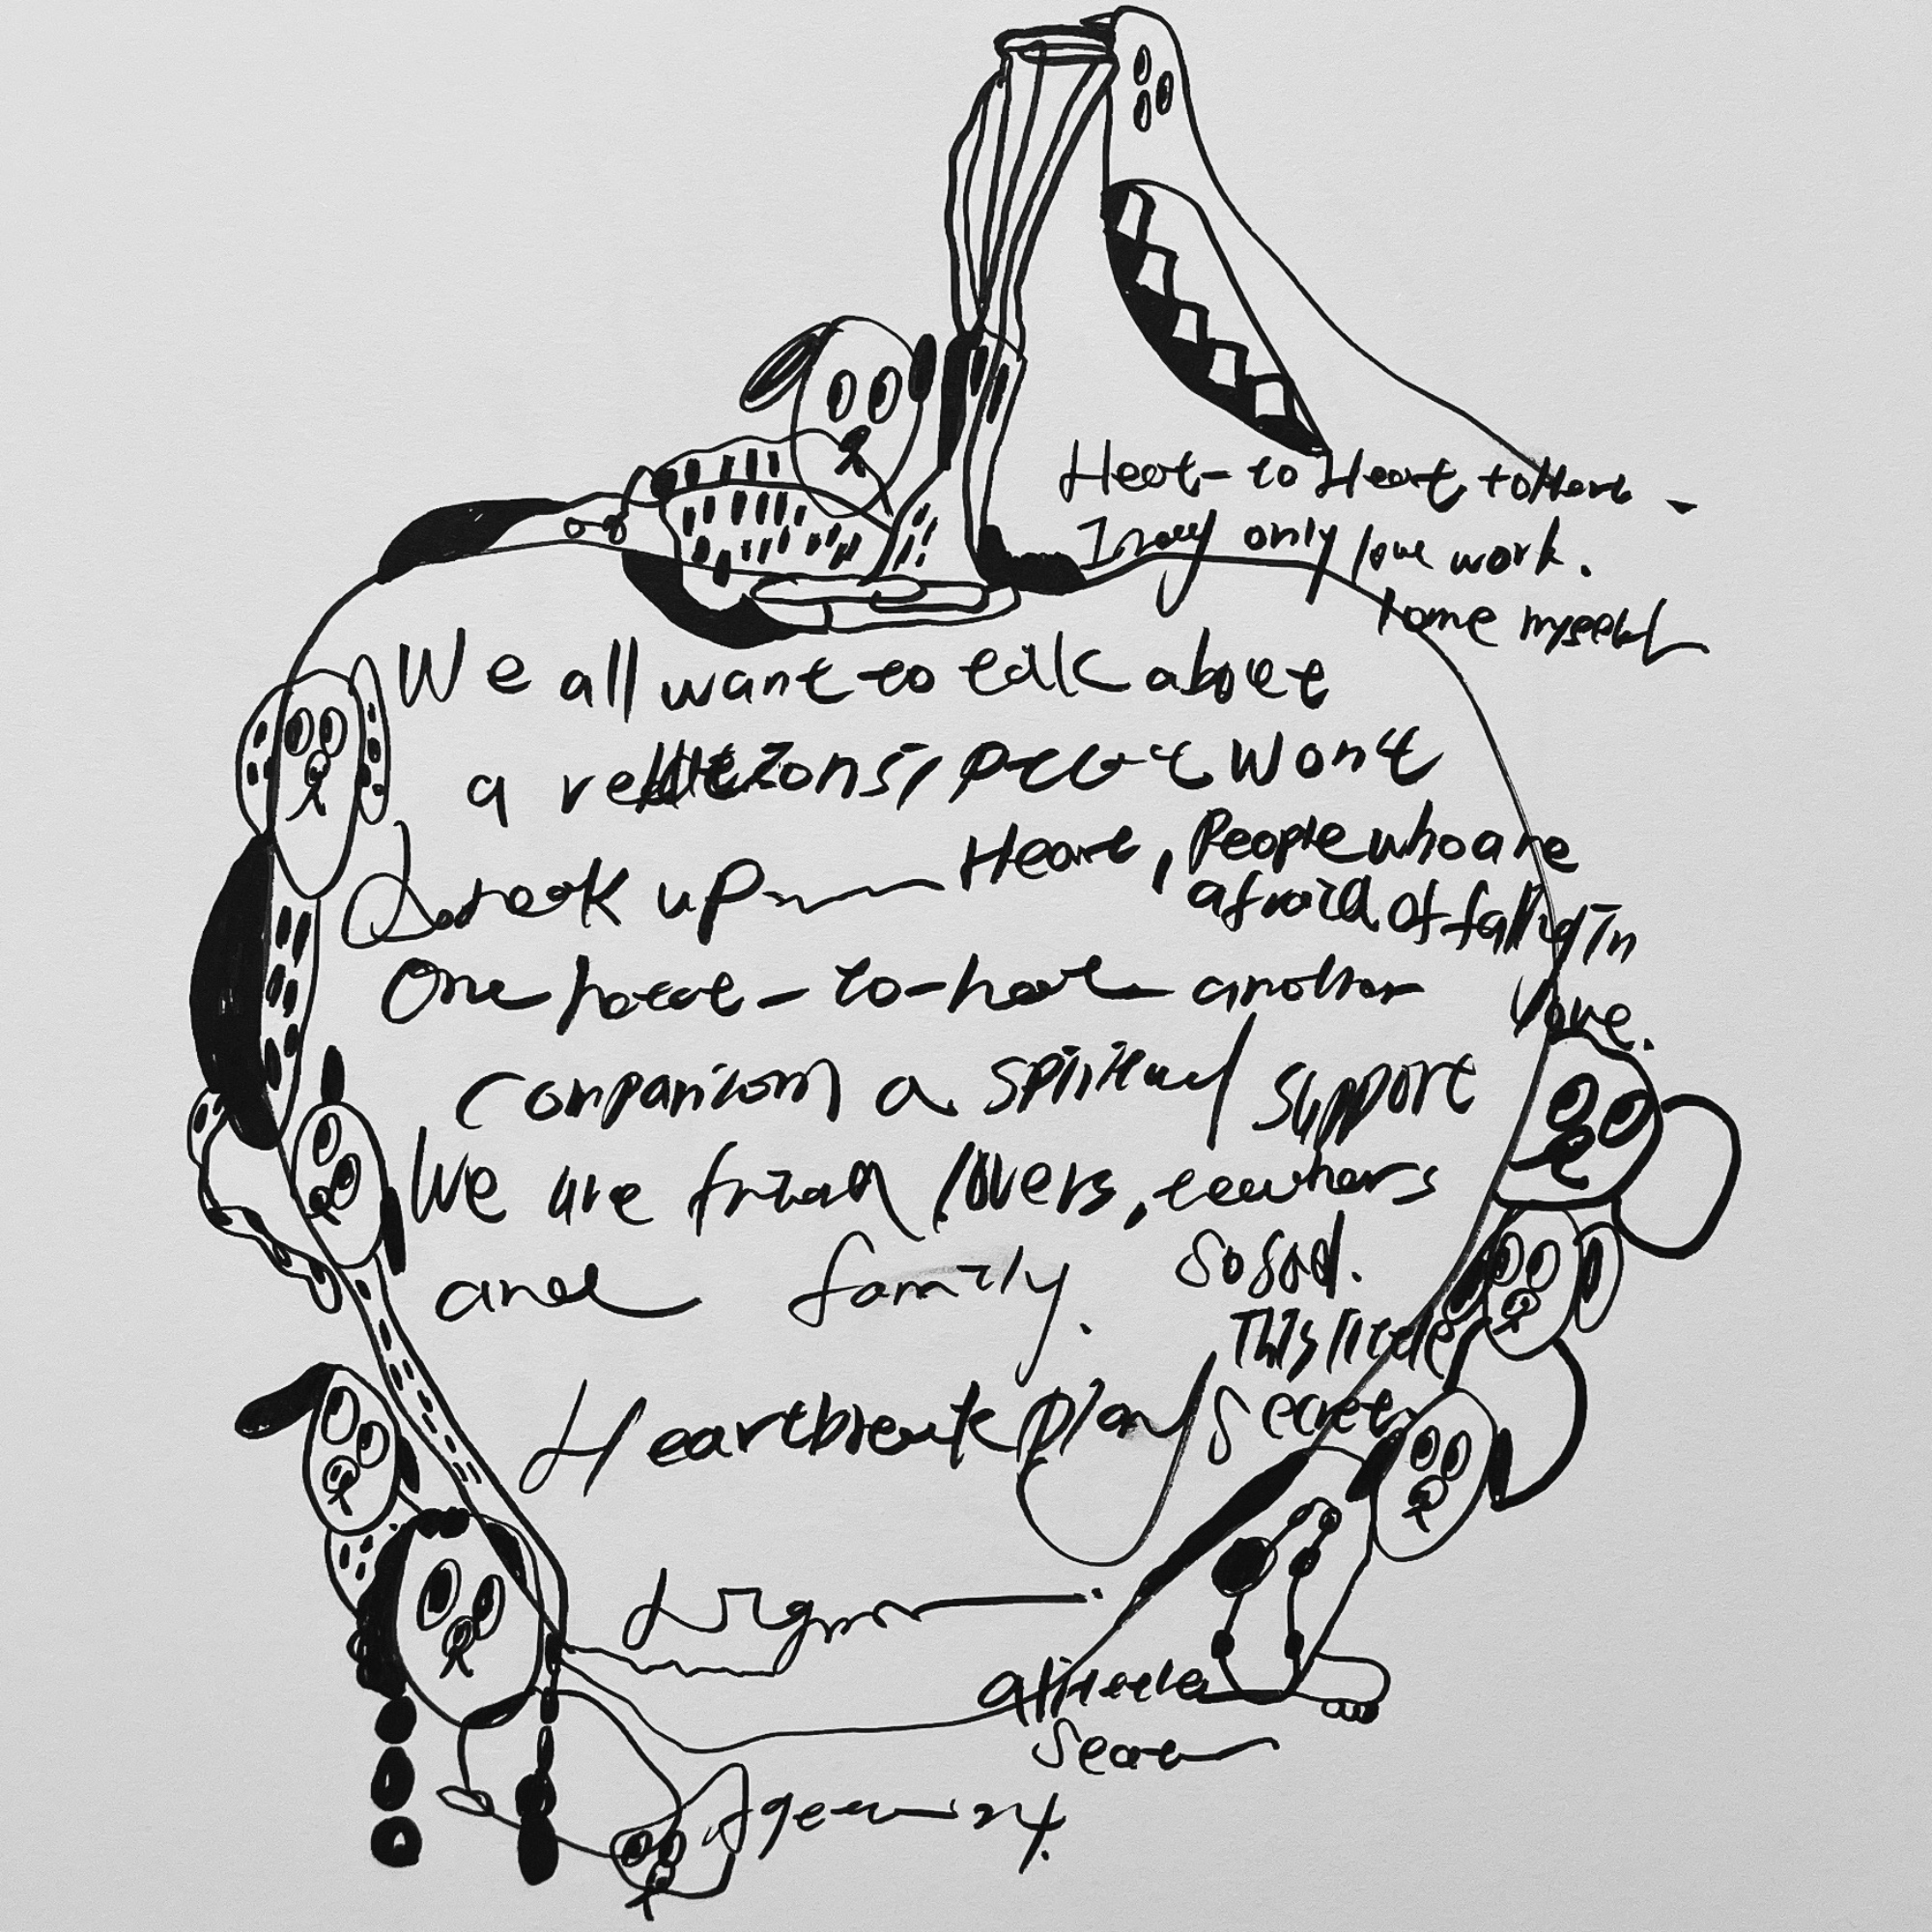 Heot-to Heart toHert-
I may only love work.
home myself
We all want to talk about
a relations, but wont
break up Heart, People who are
afraid of falling in
love.
One heart-to-heart another
companion a spiritual support
We are friend lovers, teachers
and family. So sad.
This little
Heartbreak plan secret
a little
Secret
Agee 24.